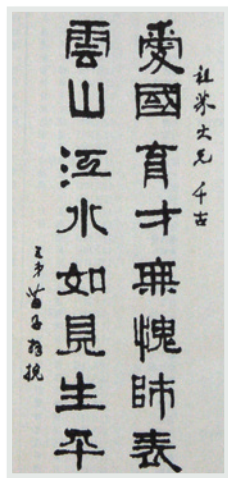 祖大兄 千古
愛國育才無愧師表
雲山江水如見生平
弟子挽